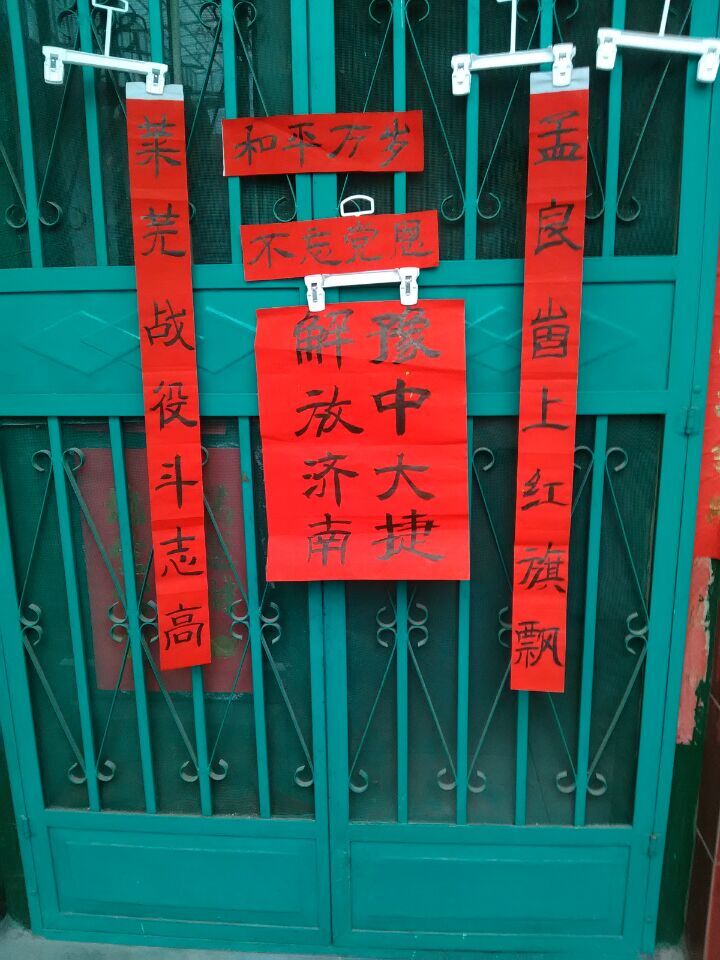 孟良崮上红旗飘
莱芜战役斗志高
和平万岁
不忘党恩
豫中大捷
解放济南